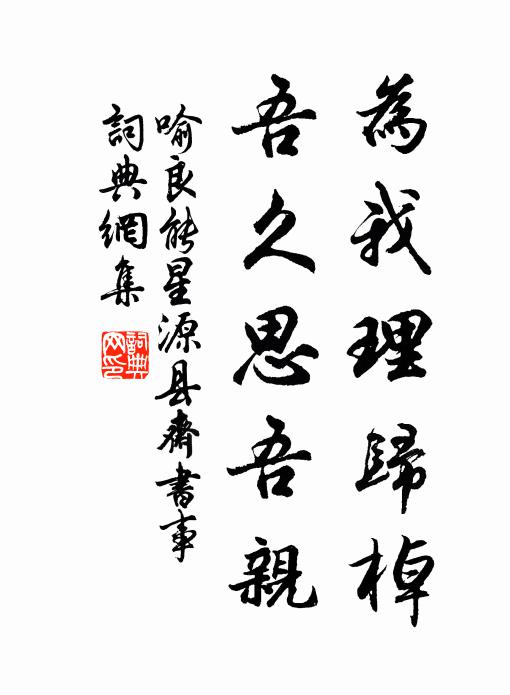 為我理歸棹
吾久思吾親
喻良能星源县齋書事
詞典網集
詞典網印